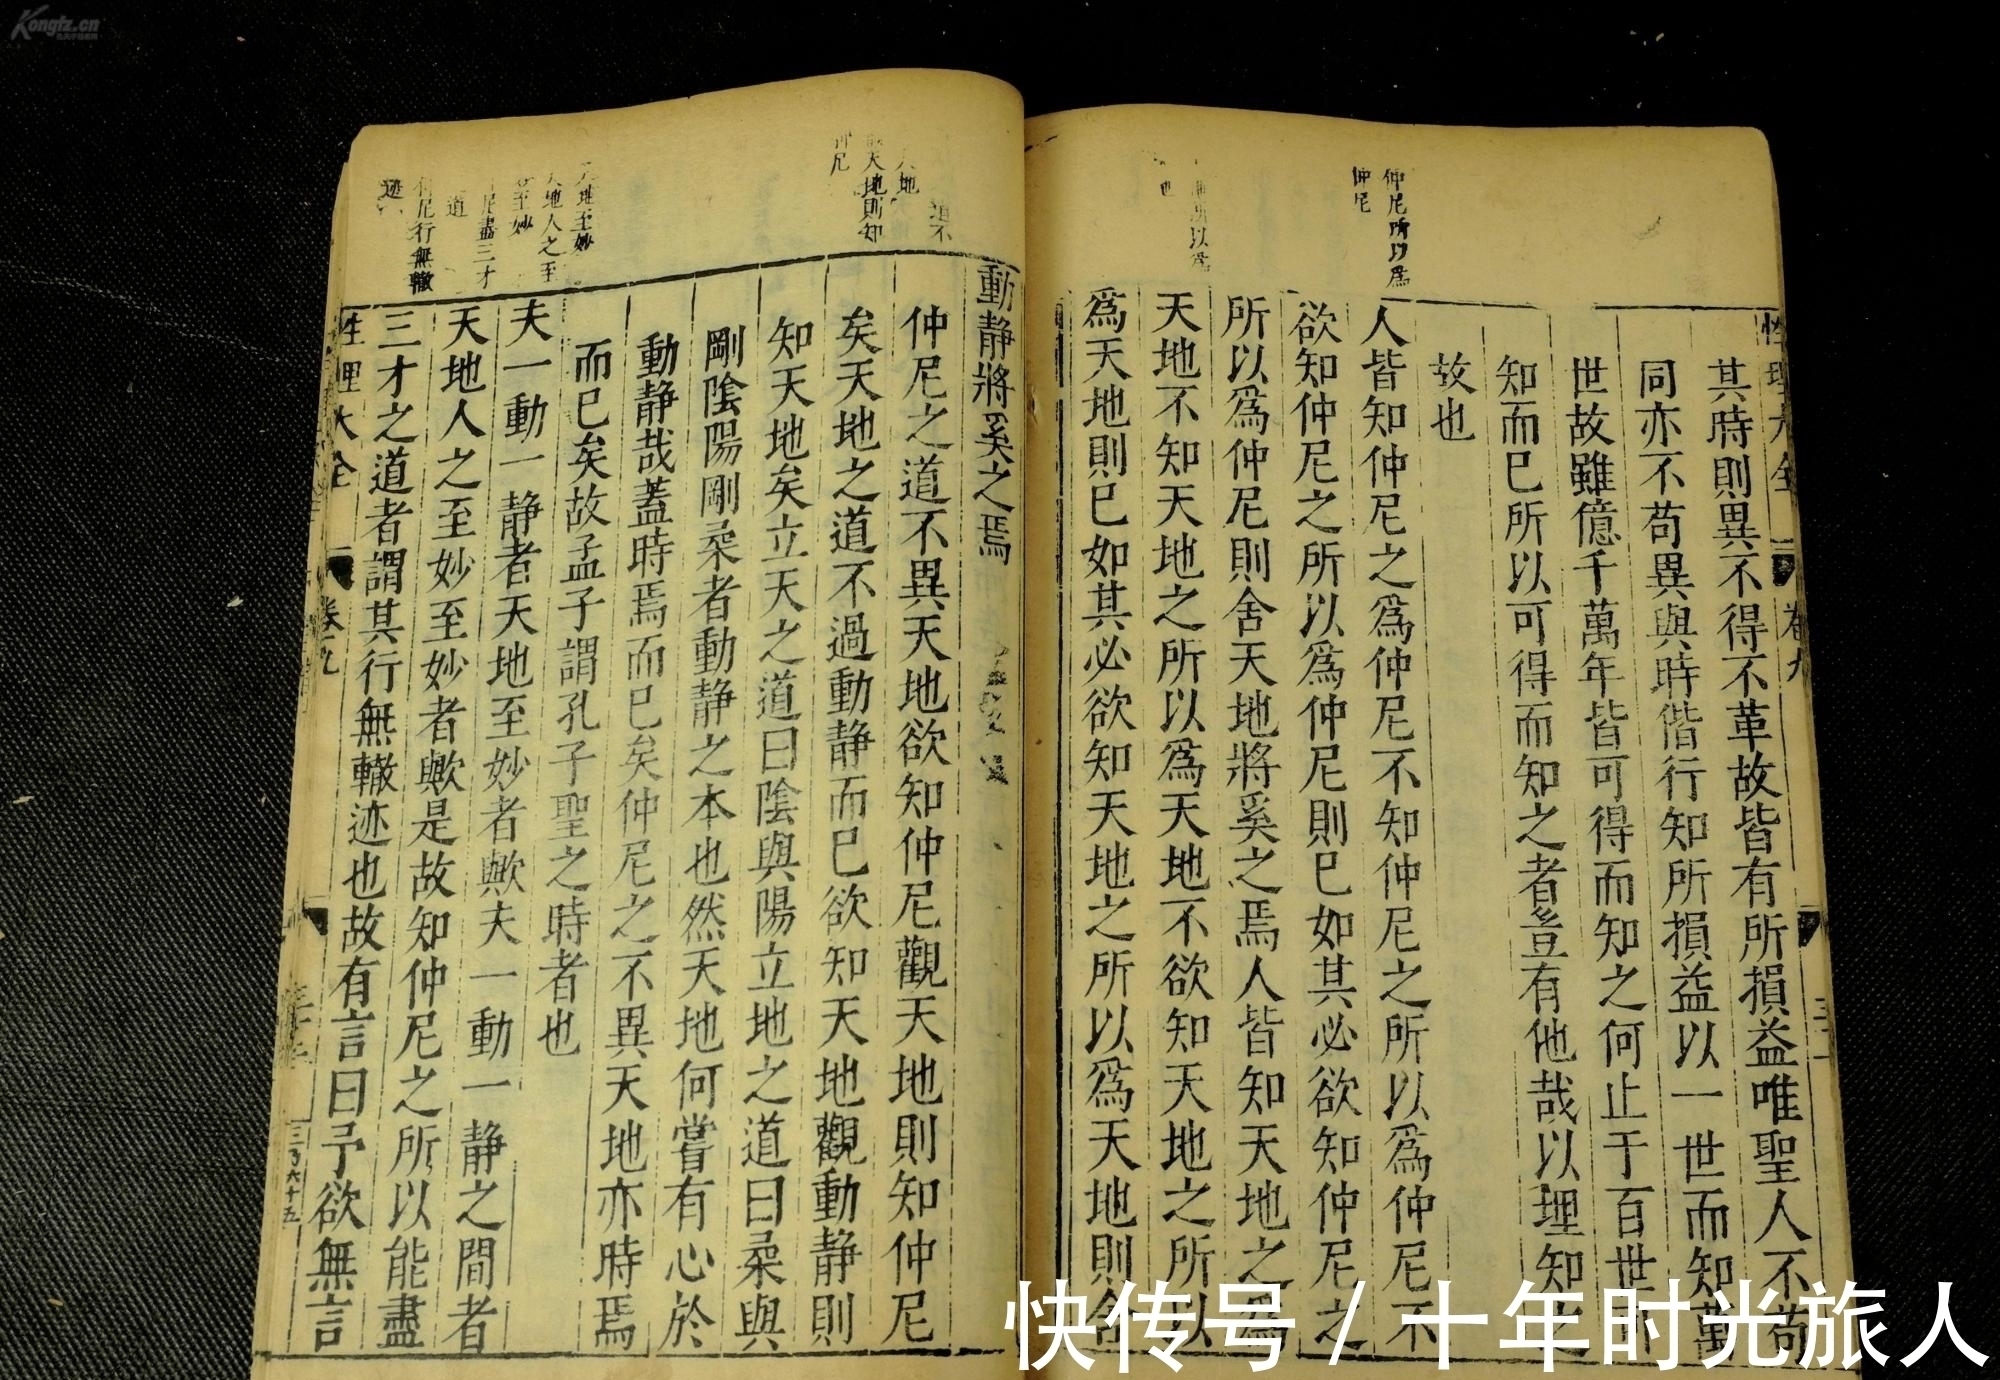 Kongfz.cn
仲尼所以爲
仲尼
性理大全 卷九
其時則異不得不革故皆有所損益唯聖人不苟
同亦不苟異與時偕行知所損益以一世而知萬
世故雖億千萬年皆可得而知之何止于百世
知而已所以可得而知之者豈有他哉以理知之
故也
人皆知仲尼之爲仲尼不知仲尼之所以爲仲尼不
欲知仲尼之所以爲仲尼則已如其必欲知仲尼之
所以爲仲尼則舍天地將奚之焉人皆知天地之爲
天地不知天地之所以爲天地不欲知天地之所以
爲天地則已如其必欲知天地之所以爲天地則舍
天地則知
仲尼
天地至妙
天地人之至
至妙
仲尼盡三才
道
仲尼行無轍
迹
動静將奚之焉
仲尼之道不異天地欲知仲尼觀天地則知仲尼
矣天地之道不過動静而已欲知天地觀動静則
知天地矣立天之道曰陰與陽立地之道曰柔與
剛陰陽剛柔者動静之本也然天地何嘗有心於
動静哉蓋時焉而已矣仲尼之不異天地亦時焉
而已矣故孟子謂孔子聖之時者也
夫一動一静者天地至妙者歟夫一動一静之間者
天地人之至妙至妙者歟是故知仲尼之所以能盡
三才之道者謂其行無轍迹也故有言曰予欲無言
性理大全 卷九
快传号 / 十年时光旅人